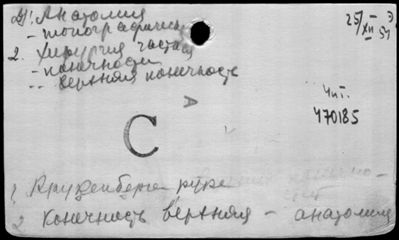 1. Анатомия
- топографическая
2. Хирургия частная
- конечности
-- верхняя конечность
25/XII 51
Э
чит.
470185
А
С
1
2 Конечность верхняя - анатомия